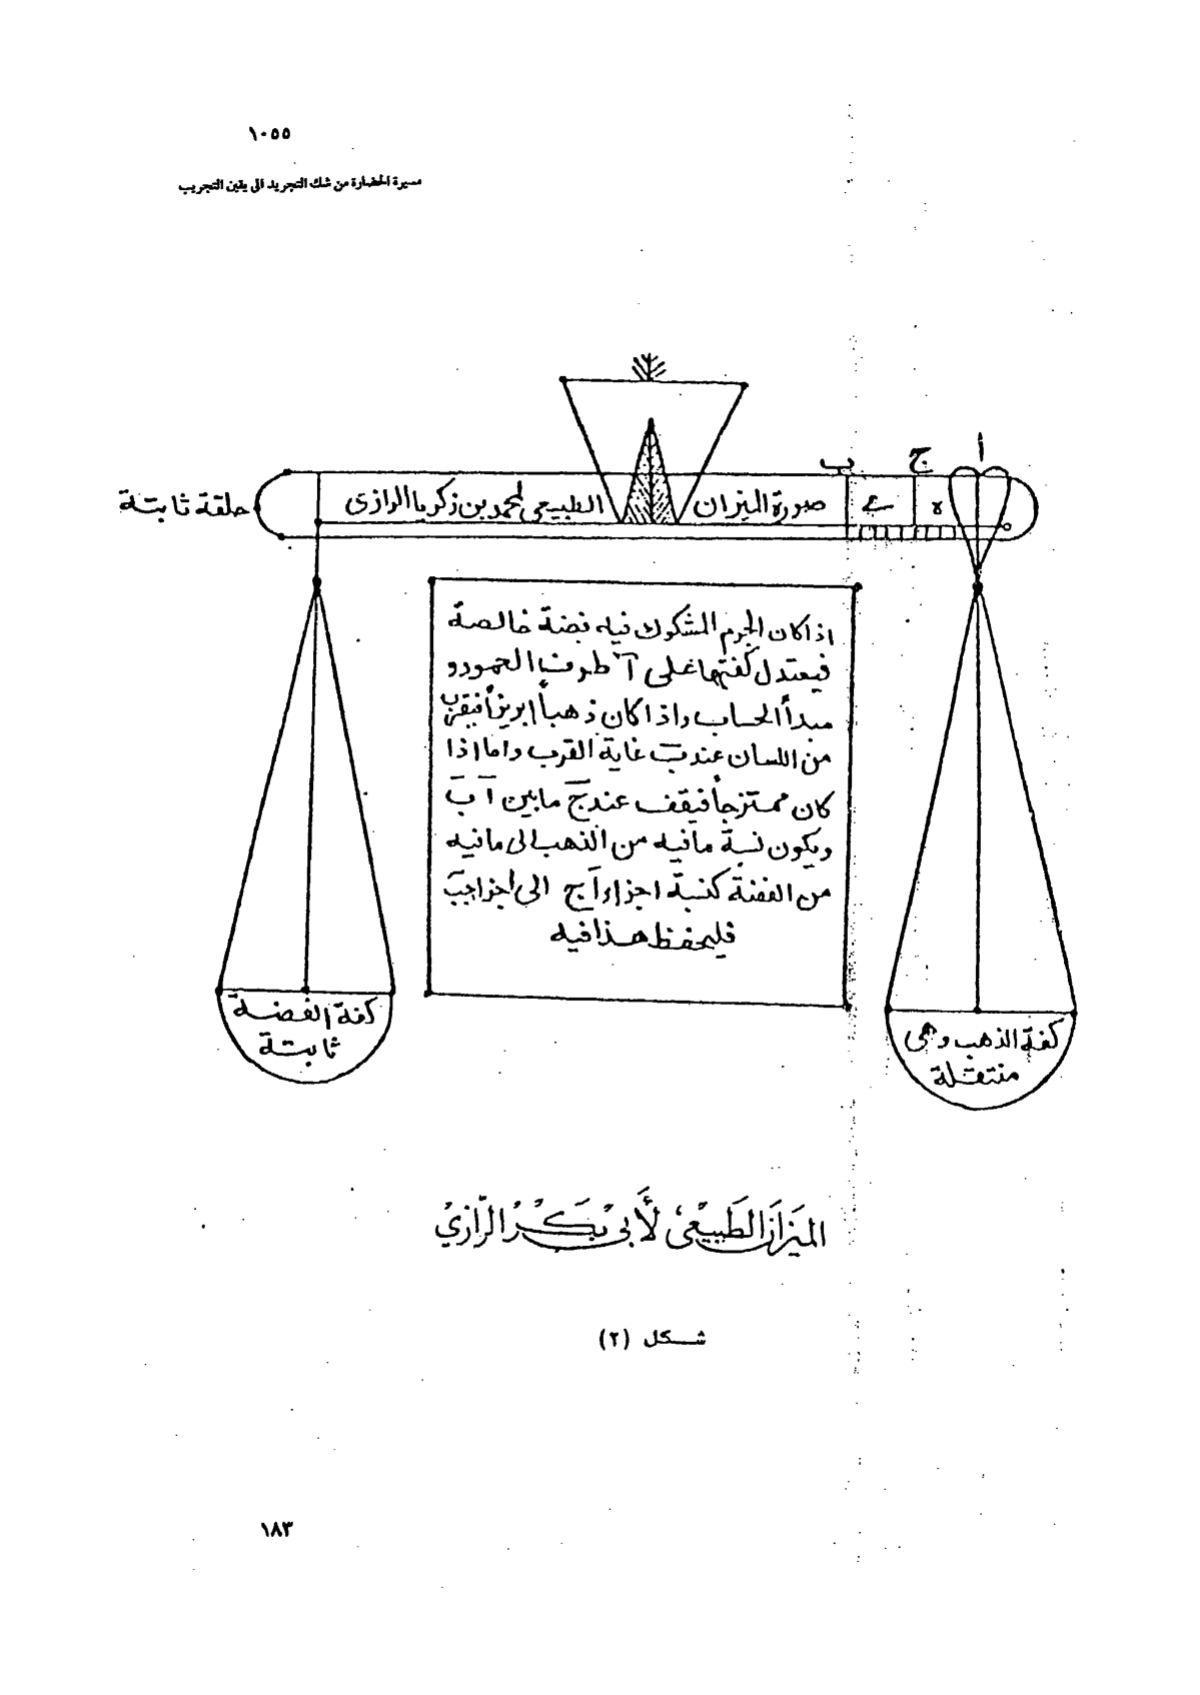 ١٠٥٥
مسيرة الحضارة من شك التجريد الى يقين التجريب
ب ج أ
حلقة ثابتة
صورة الميزان الطبيعي لمحمد بن زكريا الرازى
اذا كان الجرم المشكوك فيه فضة خالصة
فيعتدل كفتها على آ طرف العمود و
مبدأ الحساب واذا كان ذهباً ابريزاً فيقرب
من اللسان عند ب غاية القرب واما اذا
كان ممتزجاً فيقف عند ج ما بين آ ب
ويكون نسبة ما فيه من الذهب الى ما فيه
من الفضة كنسبة اجزاء آج الى اجزا جب
فليحفظ هذا فيه
كفة الفضة
ثابتة
كفة الذهب وهى
منتقلة
الميزان الطَبيعي لأَبي بَكْر الرّازيْ
شكل (٢)
١٨٣